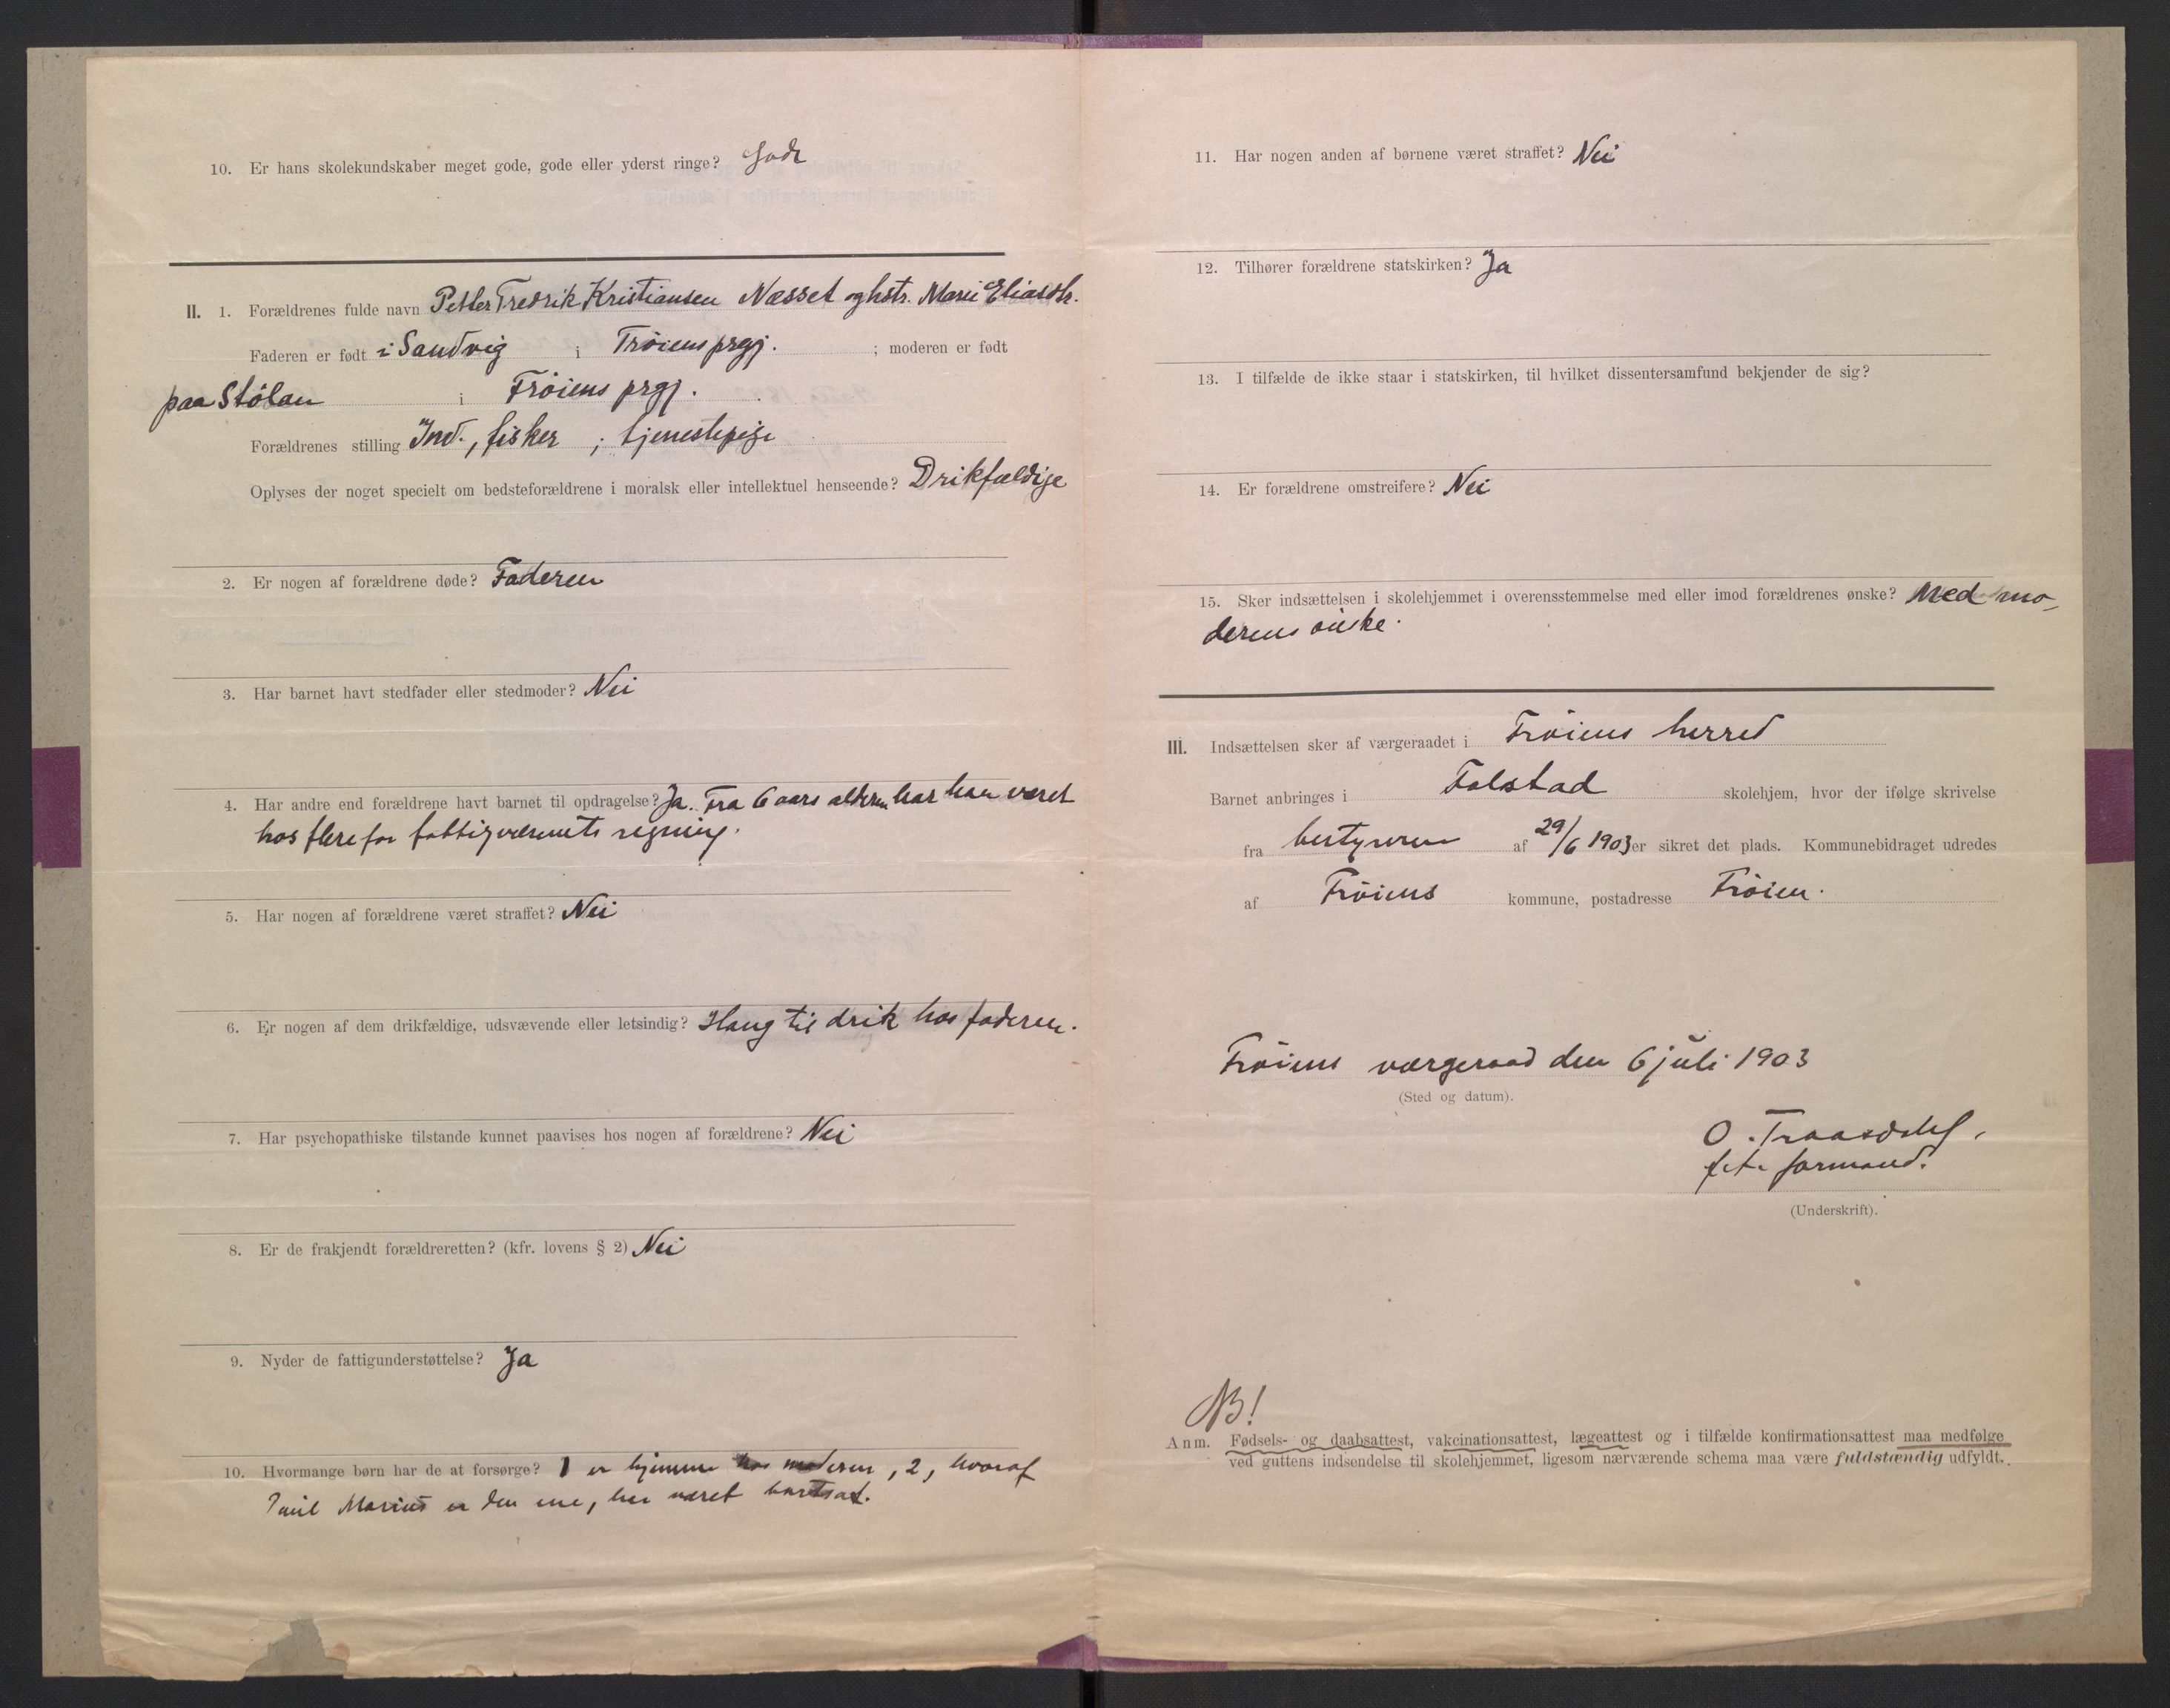 10. Er hans skolekundskaber meget gode, gode eller yderst ringe? Gode
II. 1. Forældrenes fulde navn Petter Fredrik Kristiansen Næsset og hstr. Marie Eliasdtr.
Faderen er født i Sandvig i Frøiens prgj. ; moderen er født
paa Stølan i Frøiens prgj.
Forældrenes stilling Ind., fisker ; tjenestepige
Oplyses der noget specielt om bedsteforældrene i moralsk eller intellektuel henseende? Drikfældige
2. Er nogen af forældrene døde? Faderen
3. Har barnet havt stedfader eller stedmoder? Nei
4. Har andre end forældrene havt barnet til opdragelse? Ja. Fra 6 aars alderen har han været
hos flere for fattigvæsenets regning.
5. Har nogen af forældrene været straffet? Nei
6. Er nogen af dem drikfældige, udsvævende eller letsindig? Hang til drik hos faderen.
7. Har psychopathiske tilstande kunnet paavises hos nogen af forældrene? Nei
8. Er de frakjendt forældreretten? (kfr. lovens § 2) Nei
9. Nyder de fattigunderstøttelse? Ja
10. Hvormange børn har de at forsørge? 1 er hjemme hos moderen, 2, hvoraf
Emil Marius er den ene, har været bortsat.
11. Har nogen anden af børnene været straffet? Nei
12. Tilhører forældrene statskirken? Ja
13. I tilfælde de ikke staar i statskirken, til hvilket dissentersamfund bekjender de sig?
14. Er forældrene omstreifere? Nei
15. Sker indsættelsen i skolehjemmet i overensstemmelse med eller imod forældrenes ønske? Med mo-
derens ønske.
III. Indsættelsen sker af værgeraadet i Frøiens herred
Barnet anbringes i Falstad skolehjem, hvor der ifølge skrivelse
fra bestyreren af 29/6 1903 er sikret det plads. Kommunebidraget udredes
af Frøiens kommune, postadresse Frøien.
Frøiens værgeraad den 6 juli 1903
(Sted og datum).
O. Traasdahl,
f.t. formand.
(Underskrift).
NB!
Anm. Fødsels- og daabsattest, vakcinationsattest, lægeattest og i tilfælde konfirmationsattest maa medfølge
ved guttens indsendelse til skolehjemmet, ligesom nærværende schema maa være fuldstændig udfyldt.